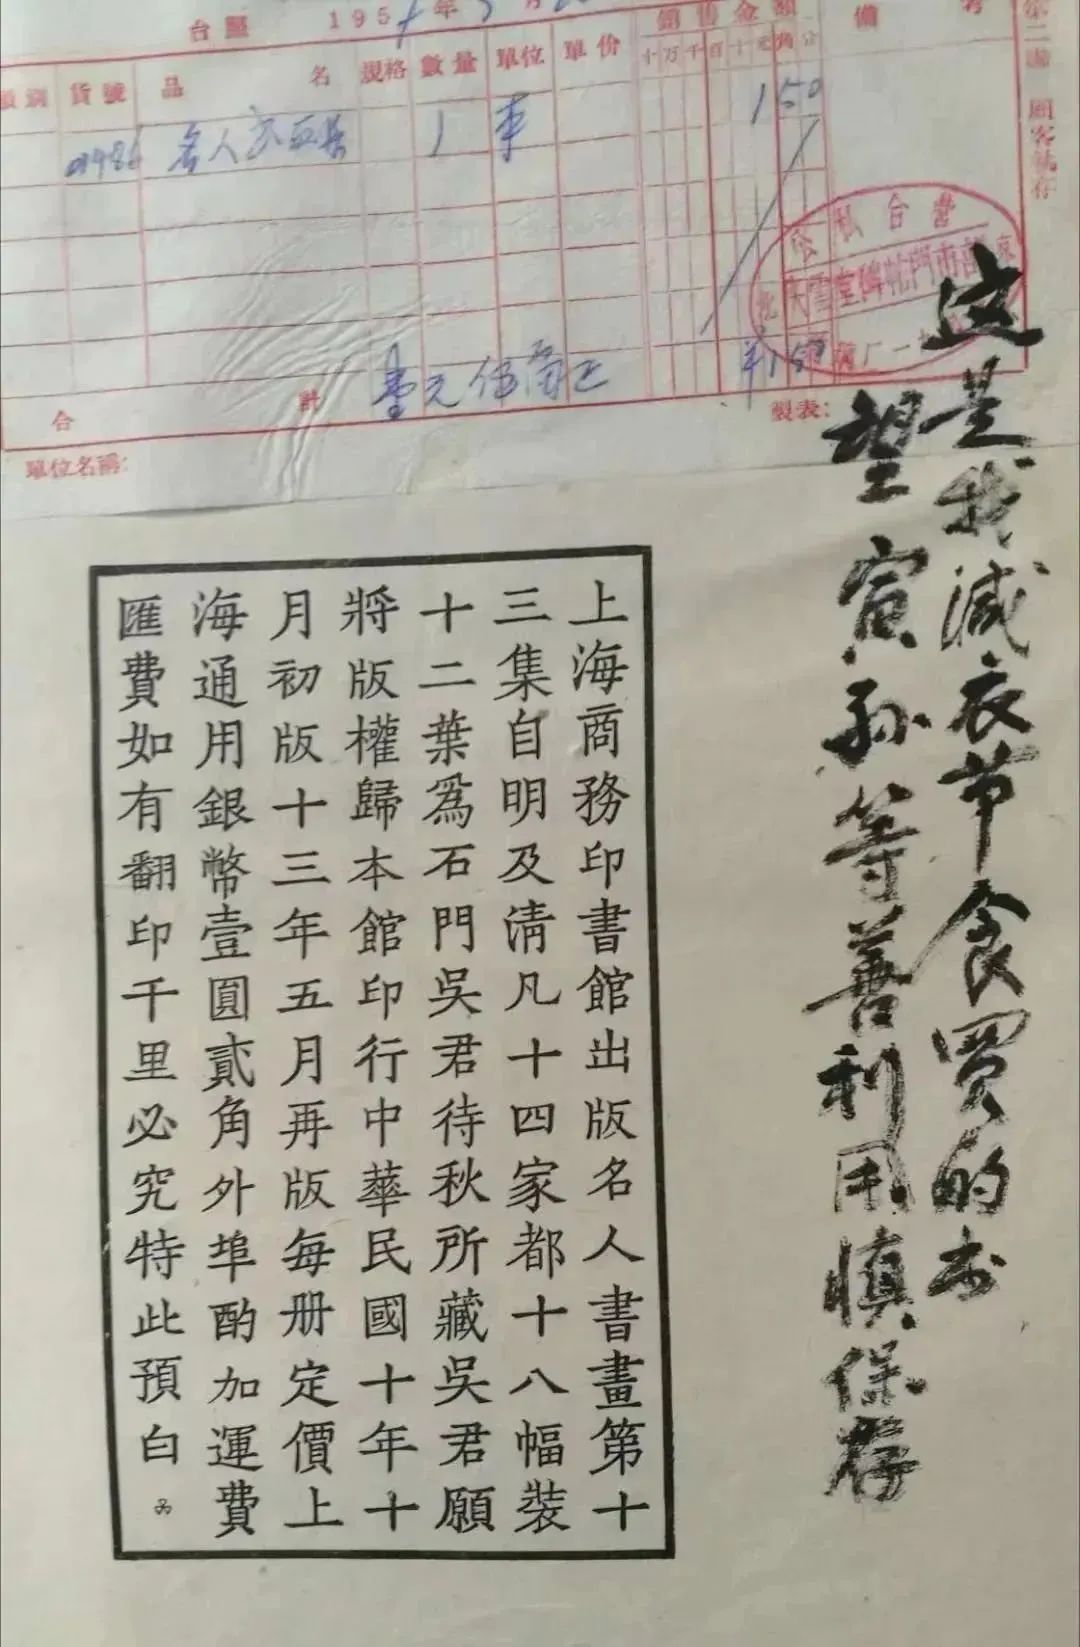 台照 195 年 月
銷售金額 備考
類別 貨號 品名 規格 數量 單位 單价 十万千百十元角分
名人 1 本 150
合計 壹元伍角正 ¥150
單位名稱: 製表:
第二聯 顧客執存
公私合營
这是我减衣节食买的书
望寅孙等善利用慎保存
上海商務印書館出版名人書畫第十
三集自明及淸凡十四家都十八幅裝
十二葉爲石門吳君待秋所藏吳君願
將版權歸本館印行中華民國十年十
月初版十三年五月再版每册定價上
海通用銀幣壹圓貳角外埠酌加運費
匯費如有翻印千里必究特此預白